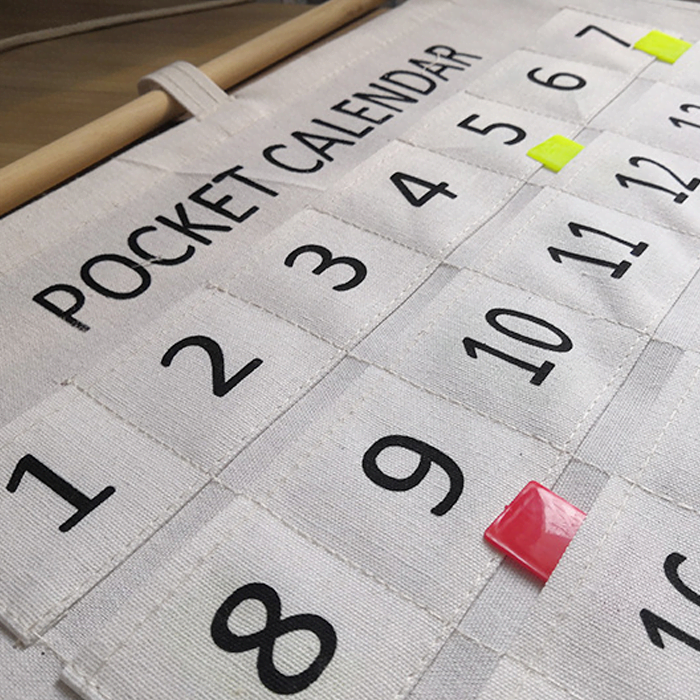 POCKET CALENDAR
1 2 3 4 5 6 7
8 9 10 11 12